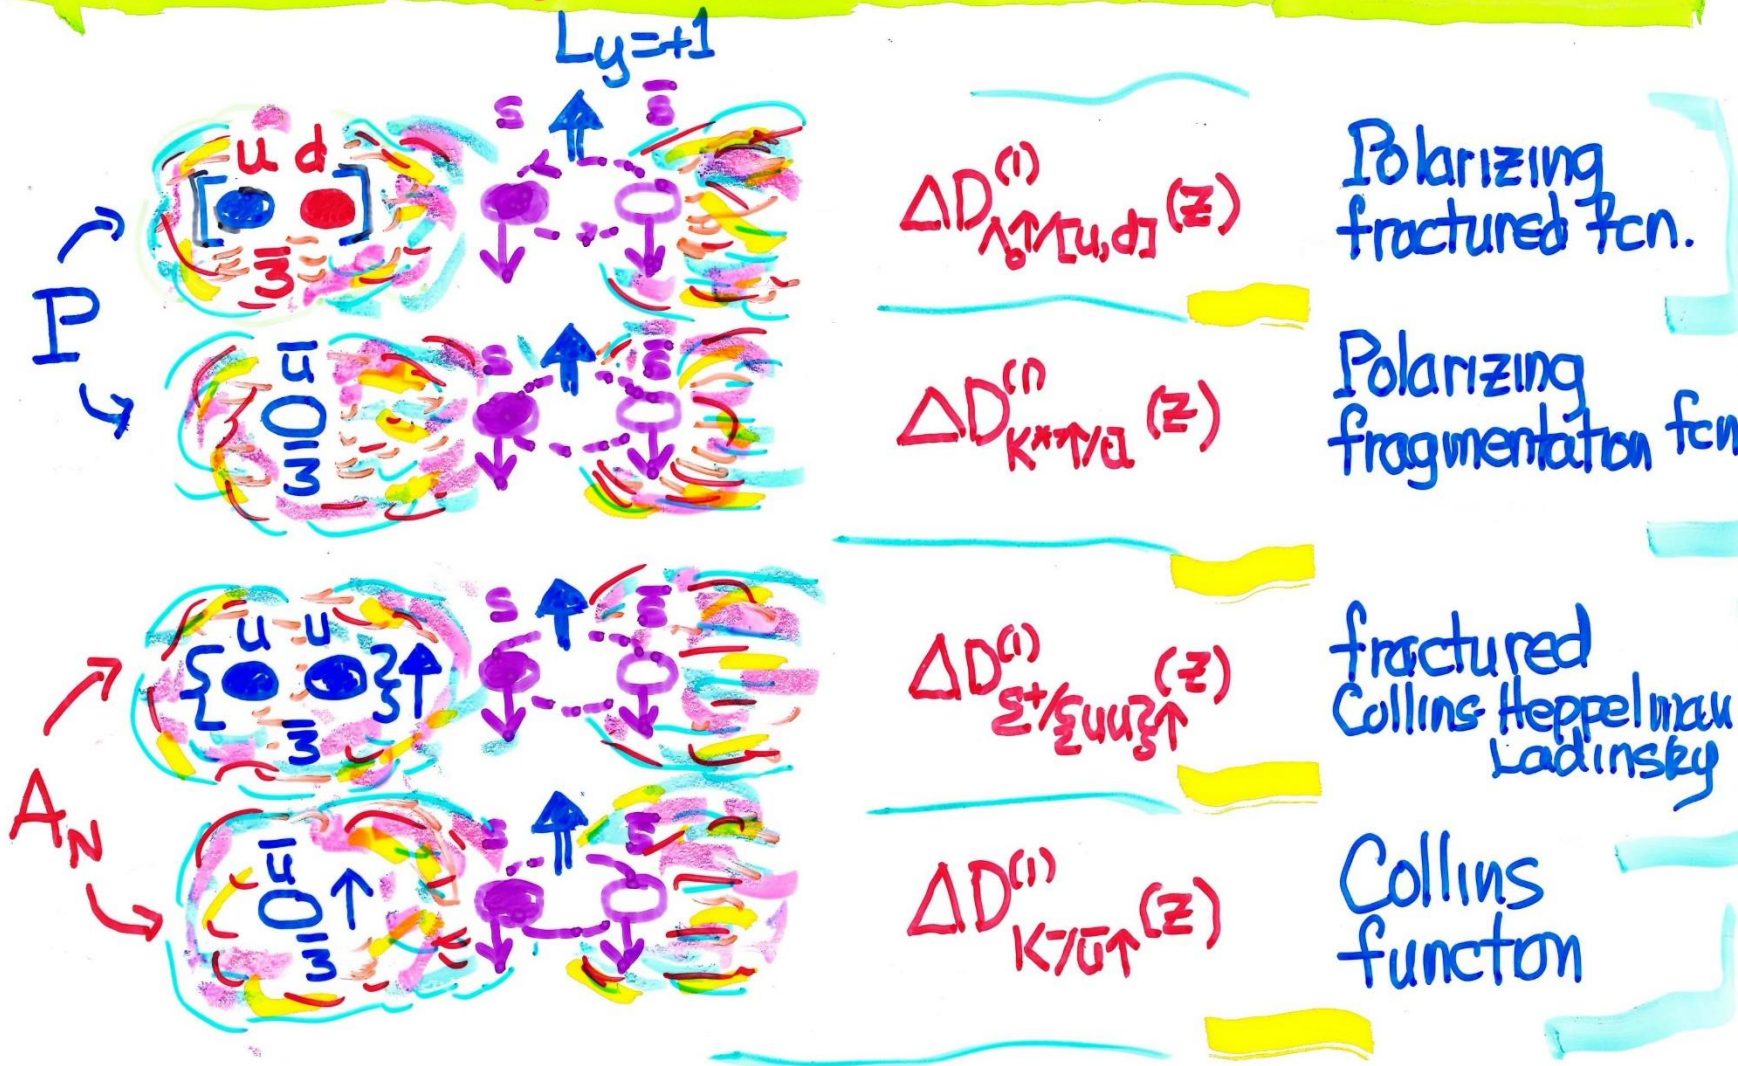 Ly=+1
s s̄
u d
[ ]
3̄
P
ΔD⁽¹⁾Λ↑/[u,d] (z)
Polarizing
fractured fcn.
s s̄
ū
3̄
ΔD⁽¹⁾ (z)
Polarizing
fragmentation fcn
s s̄
u u
{ }
3̄
A_N
ΔD⁽¹⁾Σ⁺/{uu}↑ (z)
fractured
Collins Heppelman
Ladinsky
s s̄
ū
3̄
ΔD⁽¹⁾K⁻/ū↑ (z)
Collins
function